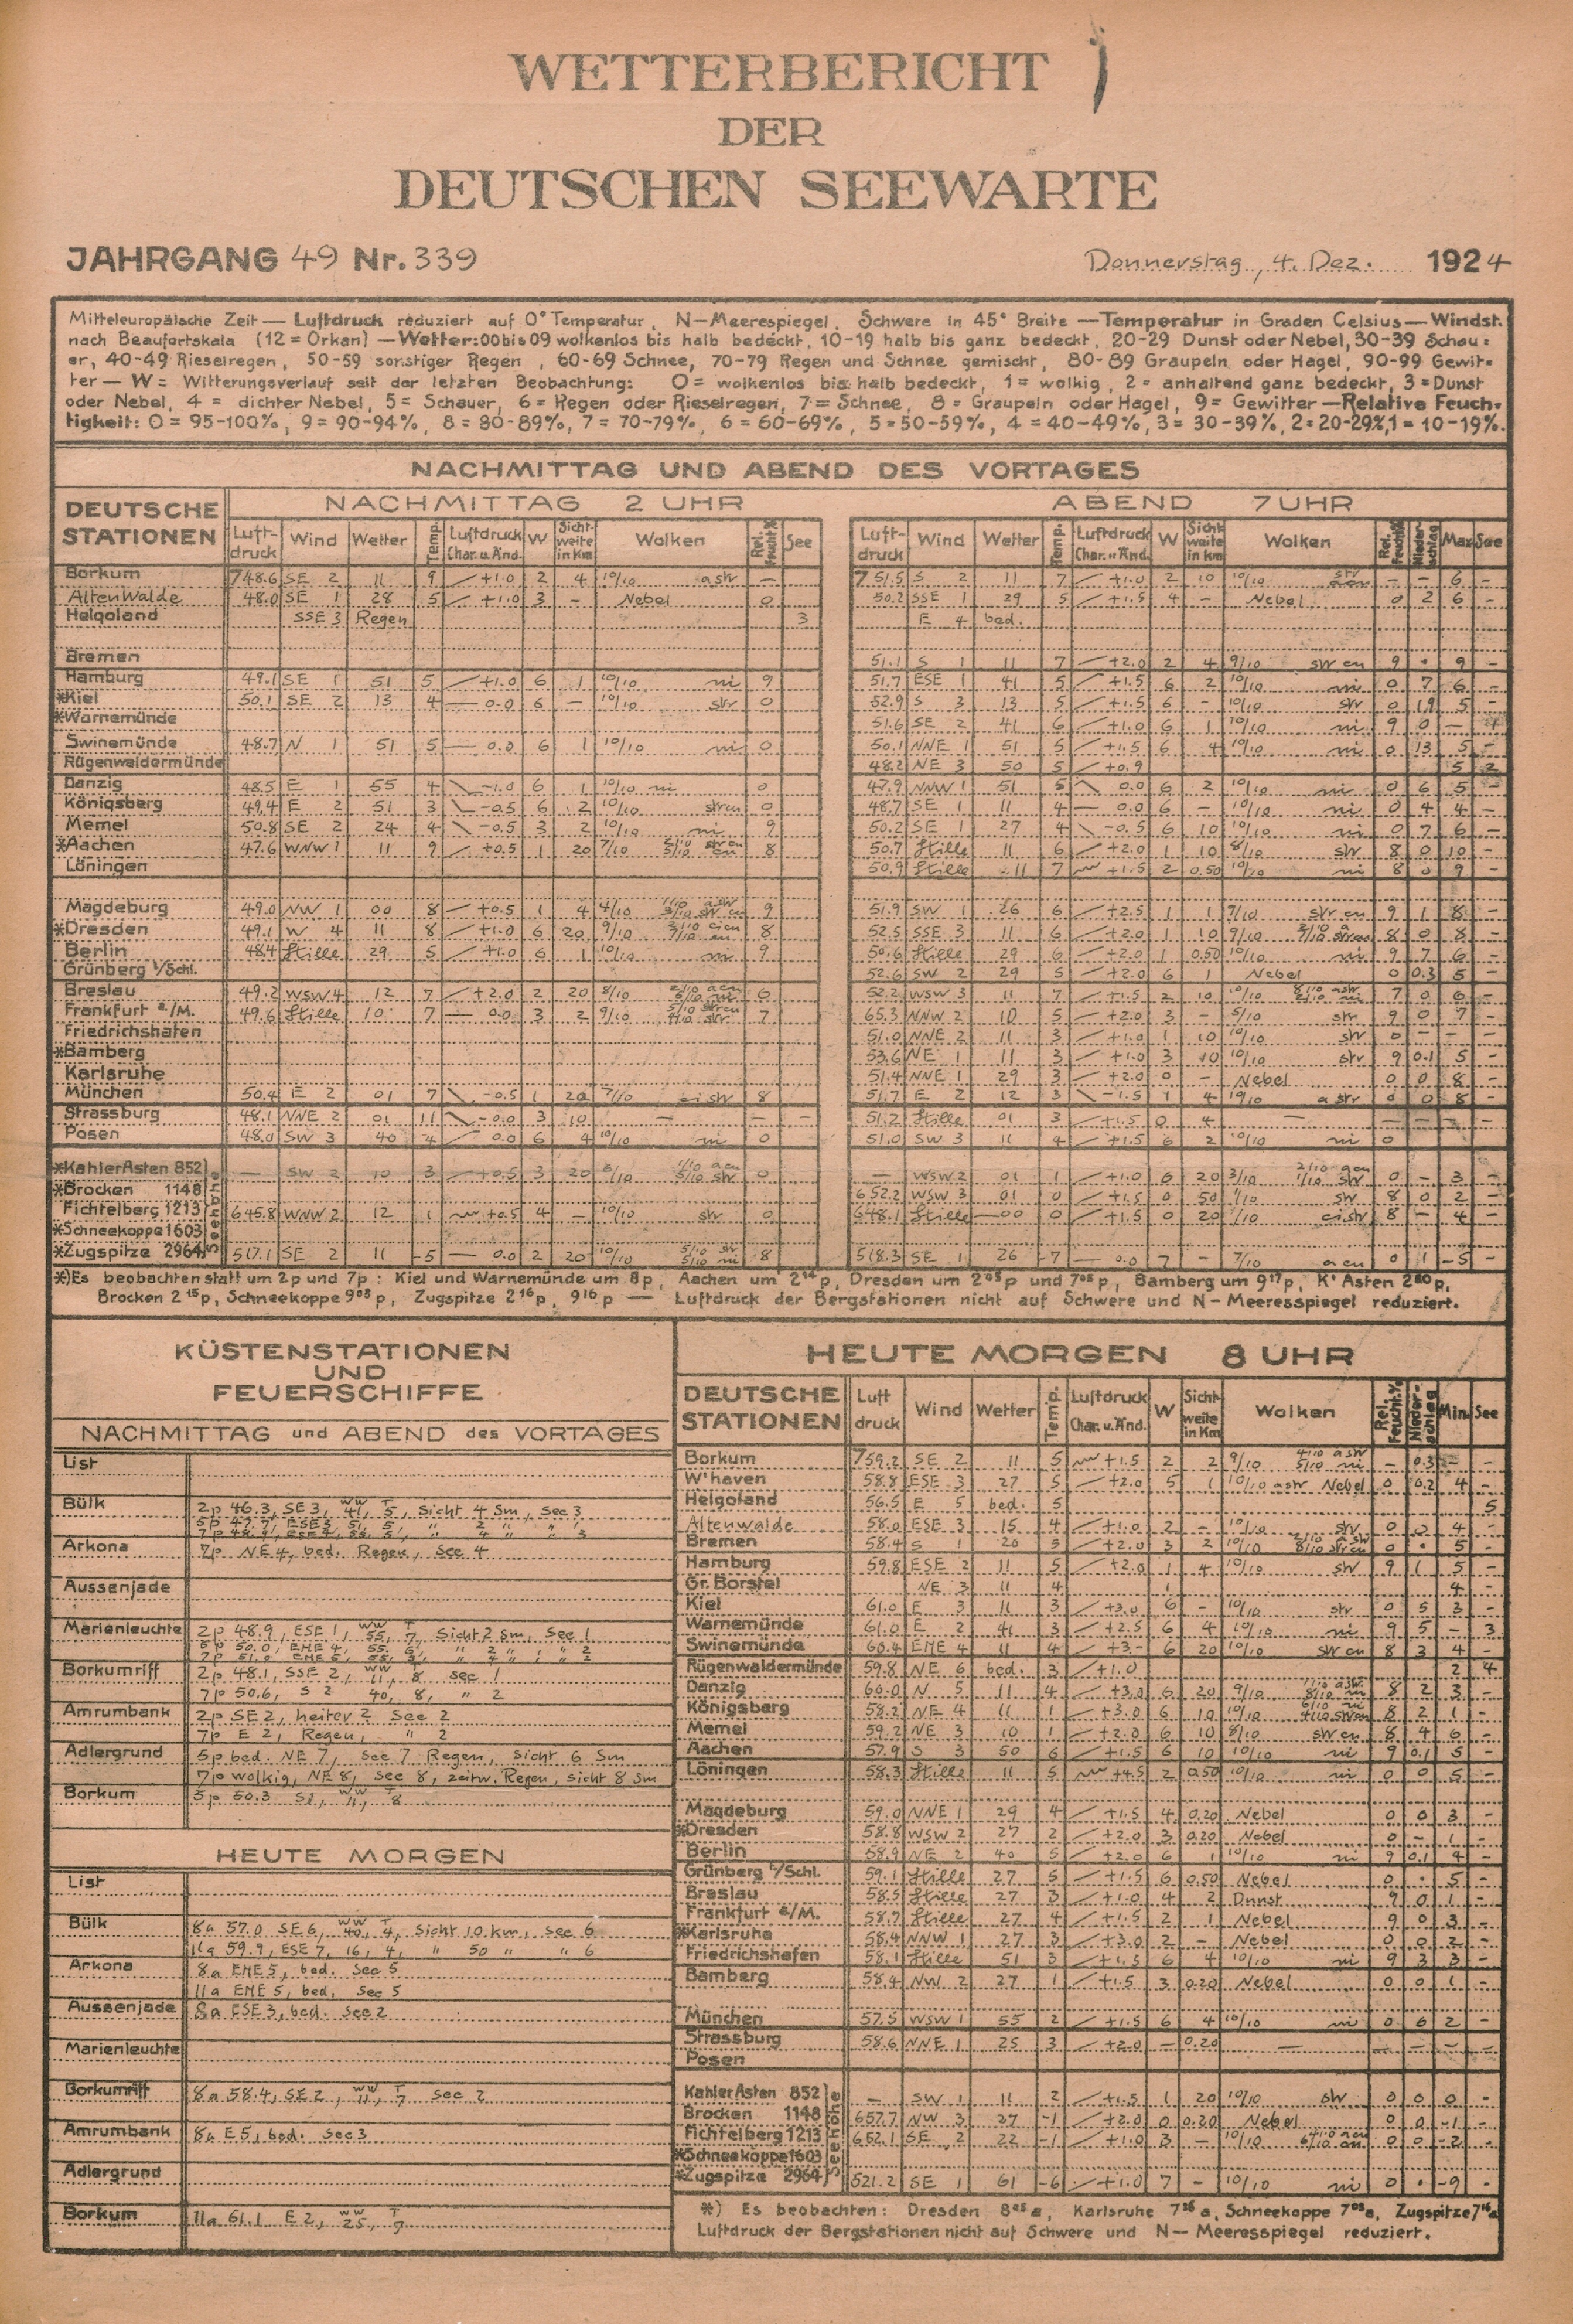 WETTERBERICHT
DER
DEUTSCHEN SEEWARTE
JAHRGANG 49 Nr. 339 Donnerstag, 4. Dez. 1924
Mitteleuropäische Zeit — Luftdruck reduziert auf 0° Temperatur, N—Meerespiegel, Schwere in 45° Breite —Temperatur in Graden Celsius—Windst.
nach Beaufortskala (12 = Orkan) —Wetter: 00 bis 09 wolkenlos bis halb bedeckt, 10-19 halb bis ganz bedeckt, 20-29 Dunst oder Nebel, 30-39 Schau=
er, 40-49 Rieselregen, 50-59 sonstiger Regen, 60-69 Schnee, 70-79 Regen und Schnee gemischt, 80-89 Graupeln oder Hagel, 90-99 Gewit-
ter — W = Witterungsverlauf seit der letzten Beobachtung: 0 = wolkenlos bis halb bedeckt, 1 = wolkig, 2 = anhaltend ganz bedeckt, 3 = Dunst
oder Nebel, 4 = dichter Nebel, 5 = Schauer, 6 = Regen oder Rieselregen, 7 = Schnee, 8 = Graupeln oder Hagel, 9 = Gewitter —Relative Feuch-
tigkeit: 0 = 95-100%, 9 = 90-94%, 8 = 80-89%, 7 = 70-79%, 6 = 60-69%, 5 = 50-59%, 4 = 40-49%, 3 = 30-39%, 2 = 20-29%, 1 = 10-19%.
NACHMITTAG UND ABEND DES VORTAGES
DEUTSCHE STATIONEN NACHMITTAG 2 UHR ABEND 7 UHR
Luft-druck Wind Wetter Temp. Luftdruck Char. u. Änd. W Sicht-weite in km Wolken Rel. Feucht.% See Luft-druck Wind Wetter Temp. Luftdruck Char. u. Änd. W Sicht-weite in km Wolken Rel. Feucht.% Nieder-schlag Max See
Borkum 748.6 SE 2 11 9 +1.0 2 4 10/10 astr — 751.5 S 2 11 7 +1.0 2 10 10/10 — — 6 —
Altenwalde 48.0 SE 1 28 5 +1.0 3 — Nebel 0 50.2 SSE 1 29 5 +1.5 4 — Nebel 0 2 6 —
Helgoland SSE 3 Regen 3 E 4 bed.
Bremen 51.1 S 1 11 7 +2.0 2 4 9/10 9 . 9 —
Hamburg 49.1 SE 1 51 5 +1.0 6 1 10/10 ni 9 51.7 ESE 1 41 5 +1.5 6 2 10/10 ni 0 7 6 —
*Kiel 50.1 SE 2 13 4 — 0.0 6 — 10/10 str 0 52.9 S 3 13 5 +1.5 6 — 10/10 str 0 19 5 —
*Warnemünde 51.6 SE 2 41 6 +1.0 6 1 10/10 ni 9 0 —
Swinemünde 48.7 N 1 51 5 — 0.0 6 1 10/10 ni 0 50.1 NNE 1 51 5 +1.5 6 4 10/10 ni 0 13 5 —
Rügenwaldermünde 48.2 NE 3 50 5 +0.9 5 2
Danzig 48.5 E 1 55 4 -1.0 6 1 10/10 ni 0 47.9 NNW 1 51 5 0.0 6 2 10/10 ni 0 6 5 —
Königsberg 49.4 E 2 51 3 -0.5 6 2 10/10 strcu 0 48.7 SE 1 11 4 — 0.0 6 — 10/10 ni 0 4 4 —
Memel 50.8 SE 2 24 4 -0.5 3 2 10/10 ni 9 50.2 SE 1 27 4 -0.5 6 10 10/10 ni 0 7 6 —
*Aachen 47.6 WNW 1 11 9 +0.5 1 20 7/10 8 50.7 Stille 11 6 +2.0 1 10 8/10 str 8 0 10 —
Löningen 50.9 Stille 11 7 +1.5 2 0.50 10/10 ni 8 0 9 —
Magdeburg 49.0 NW 1 00 8 +0.5 1 4 4/10 9 51.9 SW 1 26 6 +2.5 1 1 9/10 str cu 9 1 8 —
*Dresden 49.1 W 4 11 8 +1.0 6 20 9/10 8 52.5 SSE 3 11 6 +2.0 1 10 9/10 8 0 8 —
Berlin 48.4 Stille 29 5 +1.0 6 1 10/10 ni 9 50.6 Stille 29 6 +2.0 1 0.50 10/10 ni 9 7 6 —
Grünberg i/Schl. 52.6 SW 2 29 5 +2.0 6 1 Nebel 0 0.3 5 —
Breslau 49.2 WSW 4 12 7 +2.0 2 20 8/10 6 52.2 WSW 3 11 7 +1.5 2 10 10/10 7 0 6 —
Frankfurt a/M. 49.6 Stille 10 7 — 0.0 3 2 9/10 7 65.3 NNW 2 10 5 +2.0 3 — 5/10 str 9 0 7 —
Friedrichshafen 51.0 NNE 2 11 3 +1.0 1 10 10/10 str 0 — — —
*Bamberg 53.6 NE 1 11 3 +1.0 3 10 10/10 str 9 0.1 5 —
Karlsruhe 51.4 NNE 1 29 3 +2.0 0 — Nebel 0 0 8 —
München 50.4 E 2 01 7 -0.5 1 20 7/10 cistr 8 51.7 E 2 12 3 -1.5 1 4 10/10 astr 0 0 8 —
Strassburg 48.1 NNE 2 01 11 -0.0 3 10 — — — 51.2 Stille 01 3 +1.5 0 4 — — — — —
Posen 48.0 SW 3 40 4 0.0 6 4 10/10 ni 0 51.0 SW 3 11 4 +1.5 6 2 10/10 ni 0
Seehöhe
*Kahler Asten 852 — SW 2 10 3 +0.5 3 20 0 — WSW 2 01 1 +1.0 6 20 3/10 0 — 3 —
*Brocken 1148 652.2 WSW 3 01 0 +1.5 0 50 1/10 str 8 0 2 —
Fichtelberg 1213 645.8 WNW 2 12 1 +0.5 4 — 10/10 str 0 648.1 Stille 00 0 +1.5 0 20 1/10 cistr 8 — 4 —
*Schneekoppe 1603
*Zugspitze 2964 517.1 SE 2 11 -5 — 0.0 2 20 10/10 8 518.3 SE 1 26 -7 — 0.0 7 — 7/10 acu 0 1 -5 —
*) Es beobachten statt um 2p und 7p: Kiel und Warnemünde um 8p, Aachen um 2¹⁴p, Dresden um 2⁰⁵p und 7⁰⁵p, Bamberg um 9¹⁷p, K' Asten 2²⁰p,
Brocken 2¹⁵p, Schneekoppe 9⁰³p, Zugspitze 2¹⁶p, 9¹⁶p — Luftdruck der Bergstationen nicht auf Schwere und N—Meeresspiegel reduziert.
KÜSTENSTATIONEN
UND
FEUERSCHIFFE
NACHMITTAG und ABEND des VORTAGES
List
Bülk 2p 46.3, SE 3, ww 41, T 5, Sicht 4 Sm, See 3
5p 47.7, ESE 3, 51, 5, " 2 " "
Arkona 7p NE 4, bed. Regen, See 4
Aussenjade
Marienleuchte 2p 48.9, ESE 1, ww 55, T 7, Sicht 2 Sm, See 1
5p 50.0, ENE 4, 55, 6, " 2 " " 2
Borkumriff 2p 48.1, SSE 2, ww 11, 8 See 1
7p 50.6, S 2 40, 8, " 2
Amrumbank 2p SE 2, heiter 2 See 2
7p E 2, Regen, " 2
Adlergrund 5p bed. NE 7, See 7 Regen, Sicht 6 Sm
7p wolkig, NE 8, See 8, zeitw. Regen, Sicht 8 Sm
Borkum 5p 50.3 S 1, ww 11, T 8
HEUTE MORGEN
List
Bülk 8a 57.0 SE 6, ww 40, T 4, Sicht 10 km, See 6
11a 59.9, ESE 7, 16, 4, " 50 " " 6
Arkona 8a ENE 5, bed. See 5
11a ENE 5, bed, See 5
Aussenjade 8a ESE 3, bed. See 2
Marienleuchte
Borkumriff 8a 58.4, SE 2, ww 11, T 7 See 2
Amrumbank 8a E 5, bed. See 3
Adlergrund
Borkum 11a 61.1 E 2, ww 25, T 7
HEUTE MORGEN 8 UHR
DEUTSCHE STATIONEN Luft druck Wind Wetter Temp. Luftdruck Char. u. Änd. W Sicht-weite in Km Wolken Rel. Feucht.% Nieder-schlag Min. See
Borkum 759.2 SE 2 11 5 +1.5 2 2 9/10 — 0.3 — —
W'haven 58.8 ESE 3 27 5 +2.0 5 1 10/10 astr Nebel 0 0.2 4 —
Helgoland 56.5 E 5 bed. 5 5
Altenwalde 58.0 ESE 3 15 4 +1.0 2 — 10/10 str 0 0 4 —
Bremen 58.4 S 1 20 3 +2.0 3 2 10/10 0 . 5 —
Hamburg 59.8 ESE 2 11 5 +2.0 1 4 10/10 str 9 1 5 —
Gr. Borstel NE 3 11 4 1 4 —
Kiel 61.0 E 3 11 3 +3.0 6 — 10/10 str 0 5 3 —
Warnemünde 61.0 E 2 41 3 +2.5 6 4 10/10 ni 9 5 — 3
Swinemünde 60.4 ENE 4 11 4 +3- 6 20 10/10 str cu 8 3 4 —
Rügenwaldermünde 59.8 NE 6 bed. 3 +1.0 2 4
Danzig 60.0 N 5 11 4 +3.0 6 20 9/10 8 2 3 —
Königsberg 58.2 NE 4 11 1 +3.0 6 10 8 2 1 —
Memel 59.2 NE 3 10 1 +2.0 6 10 8/10 str cu 8 4 6 —
Aachen 57.9 S 3 50 6 +1.5 6 10 10/10 ni 9 0.1 5 —
Löningen 58.3 Stille 11 5 +4.5 2 0.50 10/10 ni 0 0 5 —
Magdeburg 59.0 NNE 1 29 4 +1.5 4 0.20 Nebel 0 0 3 —
*Dresden 58.8 WSW 2 27 2 +2.0 3 0.20 Nebel 0 — 1 —
Berlin 58.9 NE 2 40 5 +2.0 6 1 10/10 ni 9 0.1 4 —
Grünberg i/Schl. 59.1 Stille 27 5 +1.5 6 0.50 Nebel 0 . 5 —
Breslau 58.5 Stille 27 3 +1.0 4 2 Dunst 9 0 1 —
Frankfurt a/M. 58.7 Stille 27 4 +1.5 2 1 Nebel 9 0 3 —
*Karlsruhe 58.4 NNW 1 27 3 +3.0 2 — Nebel 0 0 2 —
Friedrichshafen 58.1 Stille 51 3 +1.5 6 4 10/10 ni 9 3 3 —
Bamberg 58.4 NW 2 27 1 +1.5 3 0.20 Nebel 0 0 1 —
München 57.5 WSW 1 55 2 +1.5 6 4 10/10 ni 0 6 2 —
Strassburg 58.6 NNE 1 25 3 +2.0 — 0.20 — — — — —
Posen
Seehöhe
Kahler Asten 852 — SW 1 11 2 +1.5 1 20 10/10 str 0 0 0 —
Brocken 1148 657.7 NW 3 27 -1 +2.0 0 0.20 Nebel 0 0 -1 —
Fichtelberg 1213 652.1 SE 2 22 -1 +1.0 3 — 10/10 0 0 -2 —
*Schneekoppe 1603
*Zugspitze 2964 521.2 SE 1 61 -6 +1.0 7 — 10/10 ni 0 . -9 —
*) Es beobachten: Dresden 8⁰⁵a, Karlsruhe 7³⁶a, Schneekoppe 7⁰³a, Zugspitze 7¹⁶a
Luftdruck der Bergstationen nicht auf Schwere und N—Meeresspiegel reduziert.